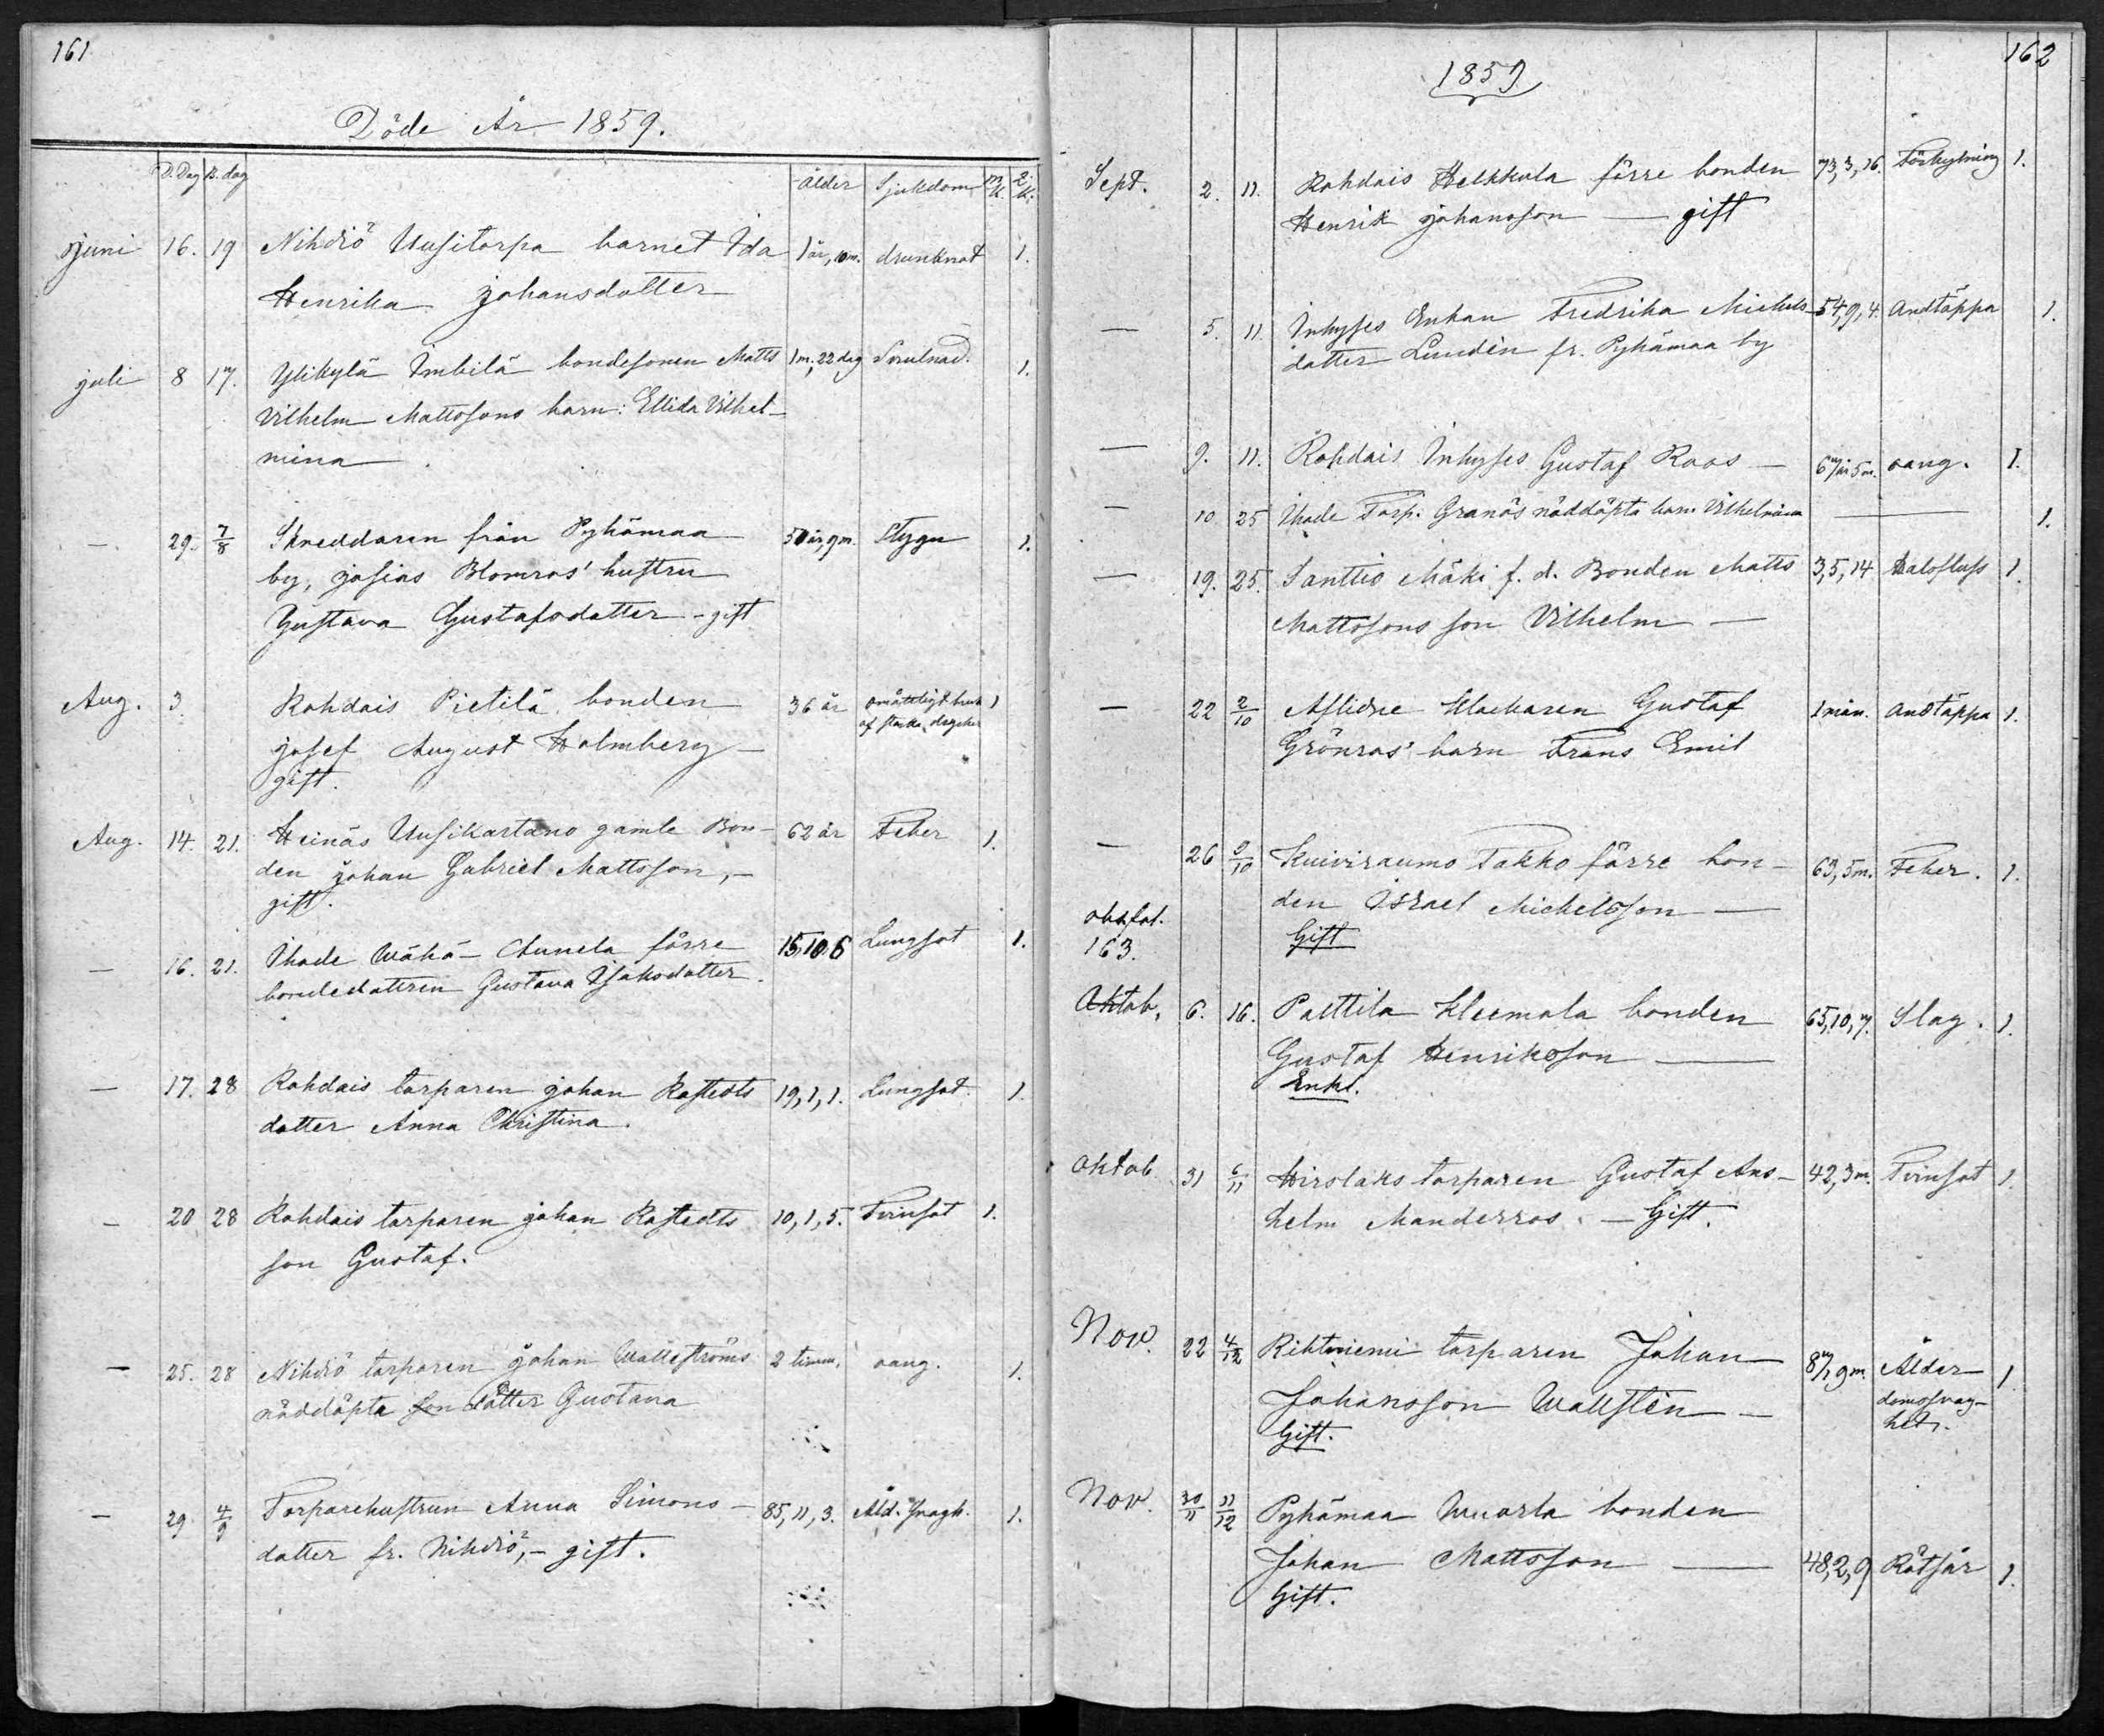 161
Döde År 1859.
D. Dag B. dag Ålder Sjukdom m.k. q.k.
Juni 16. 19 Nihdiö Uusitorpa barnet Ida 1 år, 10 m. drunknat 1.
Henrika Johansdotter
juli 8 17. Ylikylä Imbilä bondesonen Matts 1 m, 22 dag 1.
Vilhelm Mattssons barn: Ellida Vilhel-
mina.
— 29. 7/8 Skreddaren från Pyhämaa 50 år, 9 m. Stygn 1.
by, josias Blomros' hustru
Gustava Gustafsdotter - gift
Aug. 3. Rohdais Pietilä bonden 36 år omåttligt bruk 1
josef August Holmberg — af starka drycker
gift.
Aug. 14. 21. Heinäs Uusikartano gamle Bon- 62 år Feber 1.
den Johan Gabriel Mattsson, —
gift.
— 16. 21. Ihode Wähä- Aunela förre 15,10.6 Lungsot 1.
bondedottren Gustava Isaksdotter.
— 17. 28 Rohdais torparen johan Rostedts 19,1,1. Lungsot. 1.
dotter Anna Christina.
— 20 28 Rohdais torparen johan Rostedts 10,1,5. Tvinsot 1.
son Gustaf.
— 25. 28 Nihdiö torparen Johan Wallströms 2 timm. oang. 1.
nöddöpta son dotter Gustava
— 29. 4/9 Torparehustrun Anna Simons- 85,11,3. Åld. svagh. 1.
dotter fr. Nihdiö, — gift.
162
1859
Sept. 2. 11. Rohdais Helkkula förre bonden 73,3,16. Förkylning 1.
Henrik Johansson — gift
— 5. 11. Inhyses Enkan Fredrika Michels- 54,9,4. Andtäppa 1.
dotter Lundén fr. Pyhämaa by
— 9. 11. Rohdais Inhyses Gustaf Roos — 67 år 5 m. oang. 1.
— 10. 25 Ihode Torp. Granös nöddöpta barn Vilhelmina — 1.
— 19. 25. Santtio Mäki f. d. Bonden Matts 3,5,14 Halsfluss 1.
Mattssons son Vilhelm —
— 22 2/10 Aflidne Klockaren Gustaf 1 mån. Andtäppa 1.
Grönros' barn Frans Emil
— 26 9/10 Kuiviraumo Takko förre bon- 63,5 m. Feber. 1.
den Israel Michelsson —
Gift
163.
Oktob. 6. 16. Palttila Kleemola bonden 65,10,7. Slag. 1.
Gustaf Henriksson —
Enkl.
Oktob 31 6/11 Hirslaks torparen Gustaf Ans- 42,3 m. Tvinsot 1.
helm Manderros. — Gift.
Nov. 22 4/12 Rihtniemi torparen Johan 87, 9 m. Ålder- 1
Johansson Wallstén — domssvag-
Gift. het.
Nov. 30/11 11/12 Pyhämaa Wuorla bonden
Johan Mattsson — 48,2,9 Rötsår 1.
Gift.